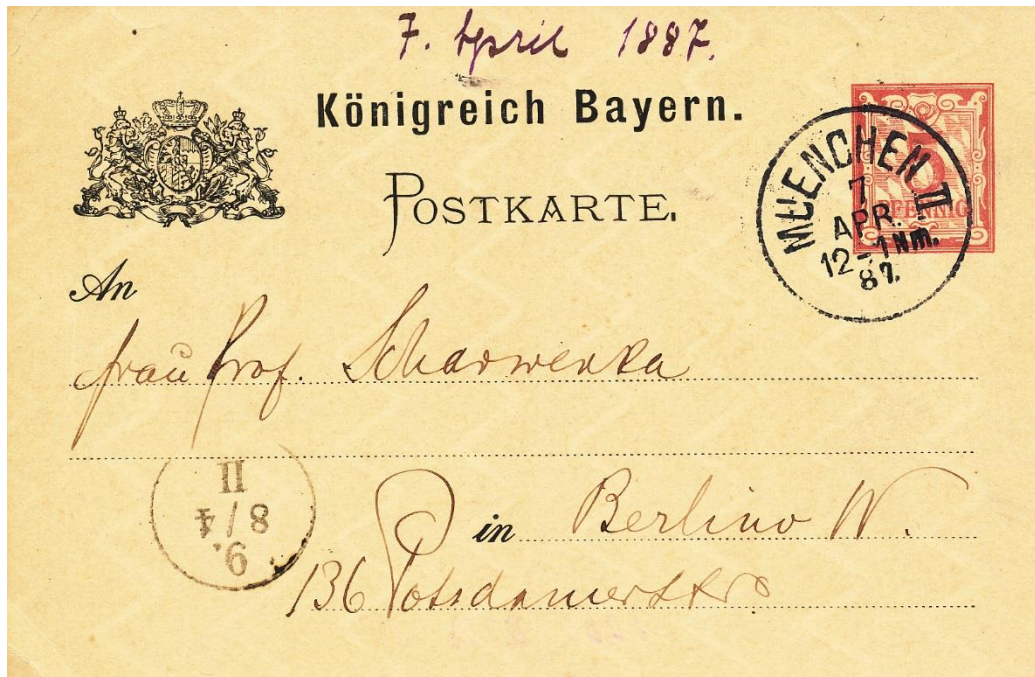 7. April 1887.
Königreich Bayern.
POSTKARTE.
5
PFENNIG
MUENCHEN II
7
APR.
12-1 Nm.
87.
An
Frau Prof. Scharwenka
in Berlin W.
136 Potsdamerstr
II
8/4
9.